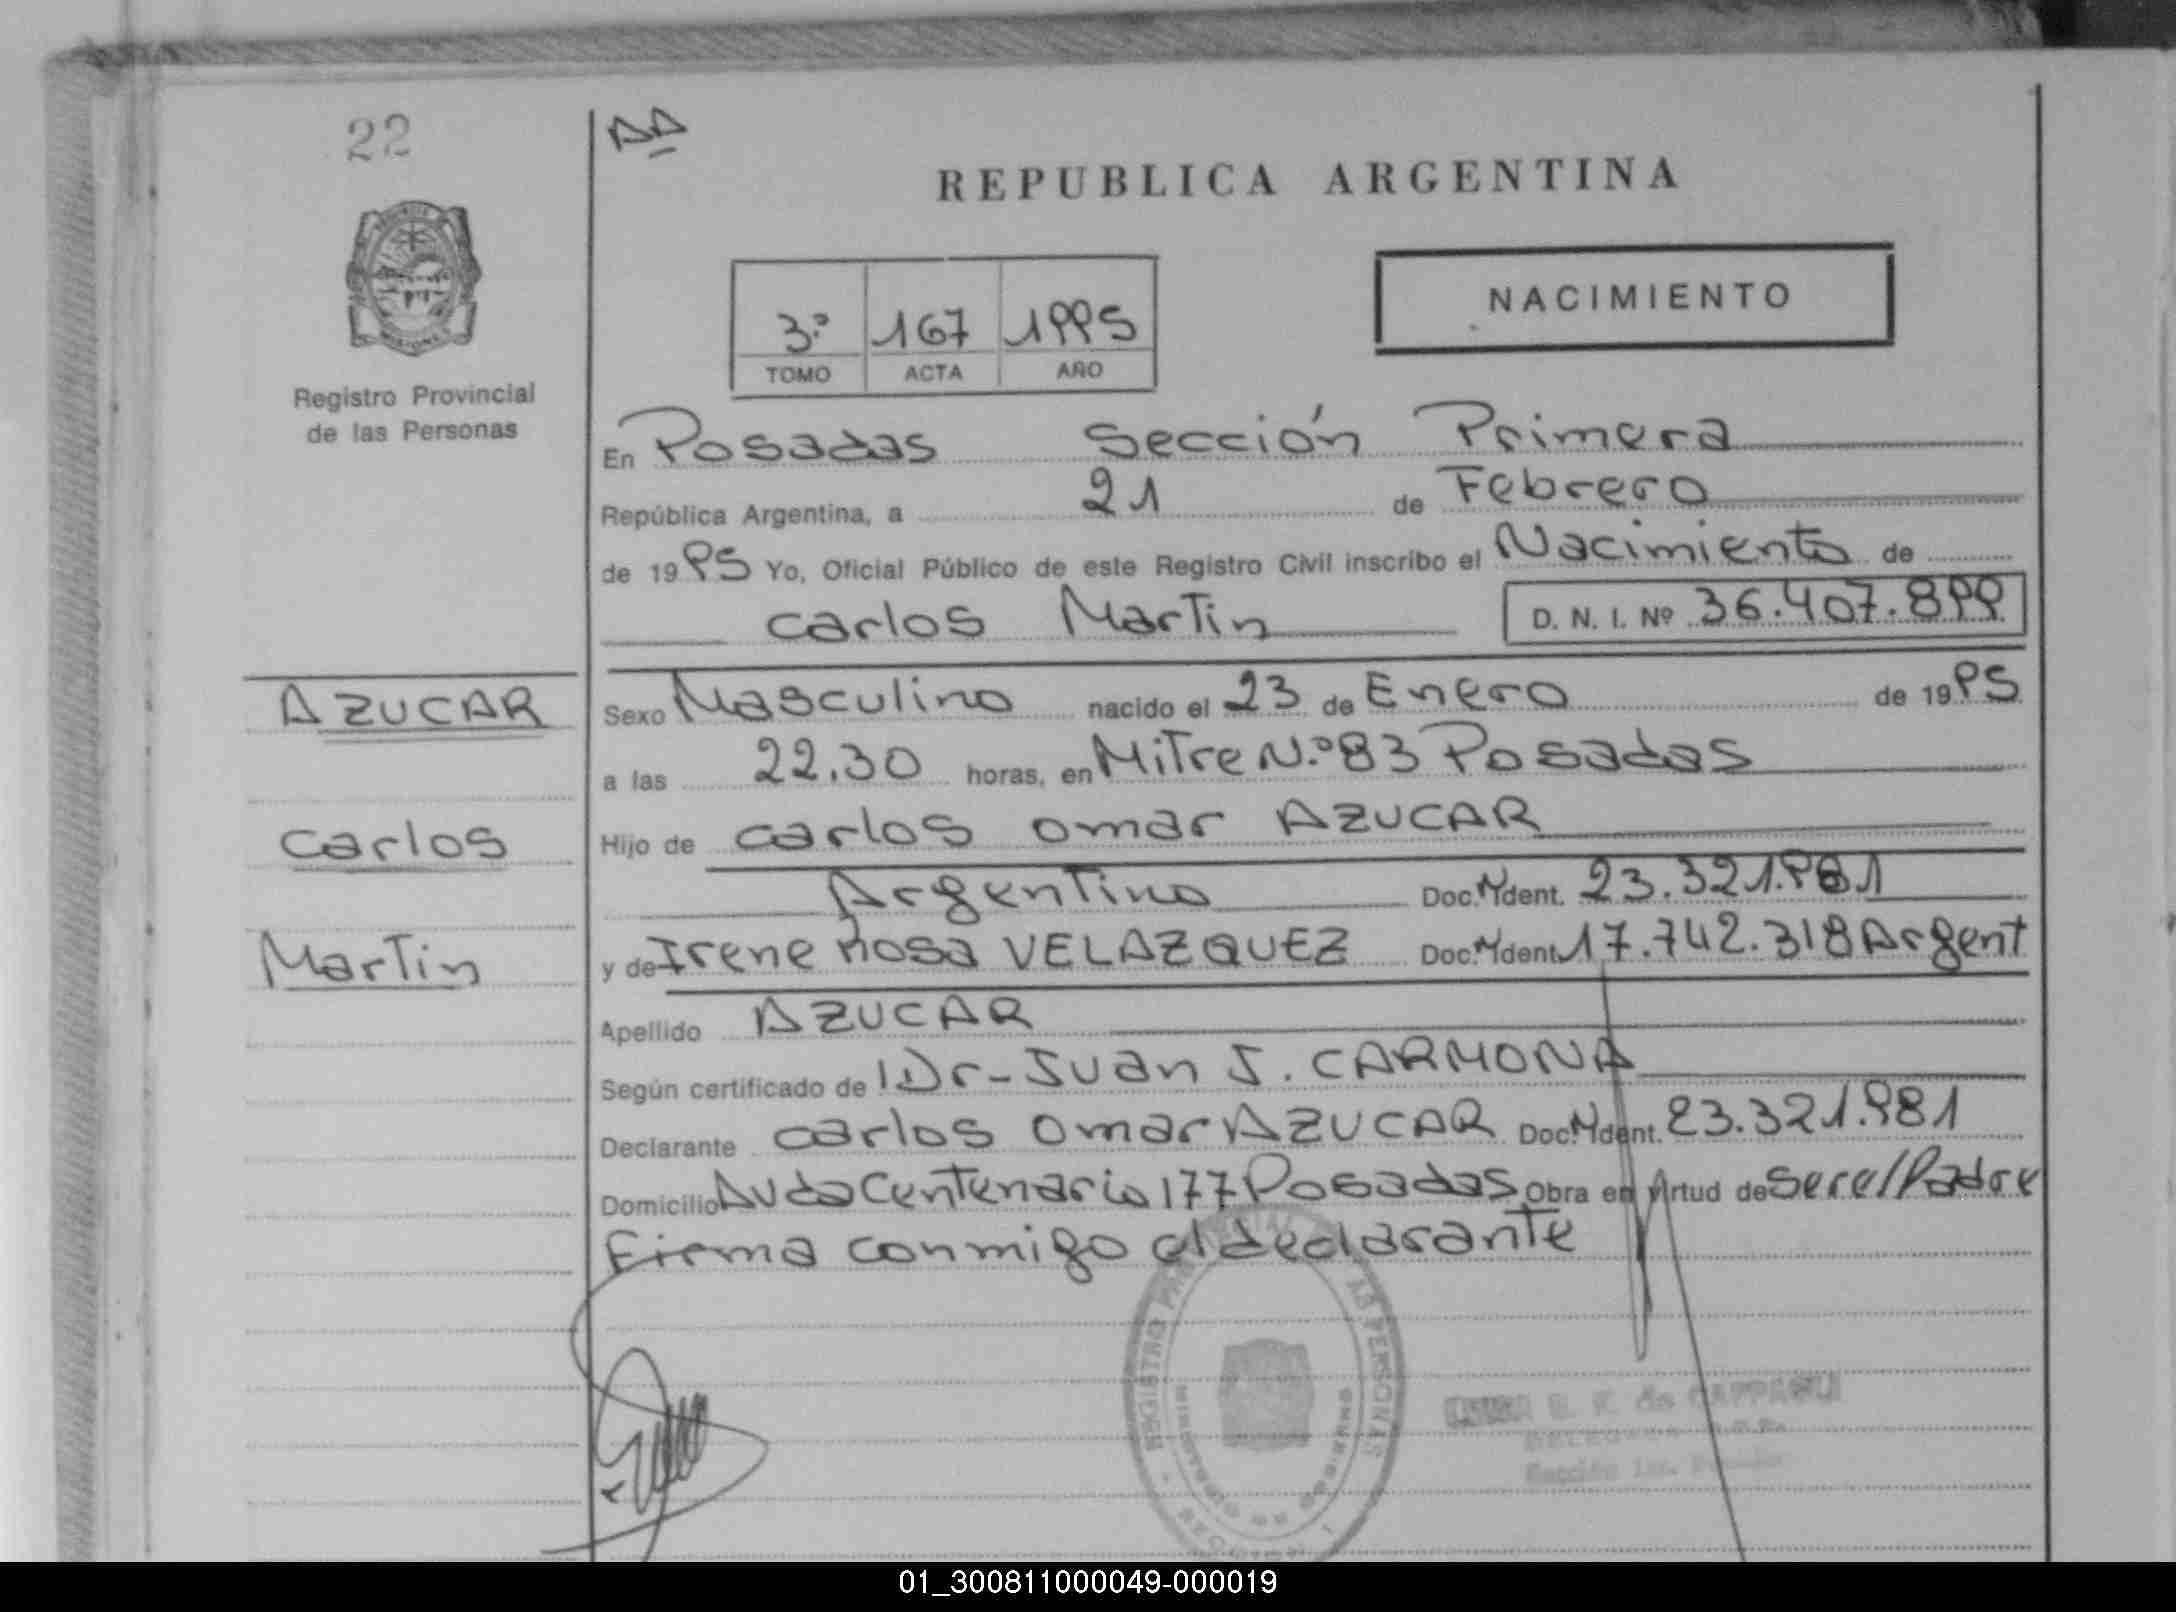 22
AA
REPUBLICA ARGENTINA
3.º 167 1995
TOMO ACTA AÑO
NACIMIENTO
Registro Provincial
de las Personas
En Posadas Sección Primera
República Argentina, a 21 de Febrero
de 1995 Yo, Oficial Público de este Registro Civil inscribo el Nacimiento de
Carlos Martin D. N. I. Nº 36.407.899
AZUCAR
Carlos
Martin
Sexo Masculino nacido el 23 de Enero de 1995
a las 22.30 horas, en Mitre N.º 83 Posadas
Hijo de Carlos Omar AZUCAR
Argentino Doc. Ident. 23.321.981
y de Irene Rosa VELAZQUEZ Doc. Ident. 17.742.318 Argent
Apellido AZUCAR
Según certificado de Dr- Juan J. CARMONA
Declarante Carlos Omar AZUCAR Doc. Ident. 23.321.981
Domicilio Avda Centenario 177 Posadas Obra en virtud de Ser el Padre
Firma conmigo el declarante
REGISTRO PROVINCIAL DE LAS PERSONAS
01_300811000049-000019